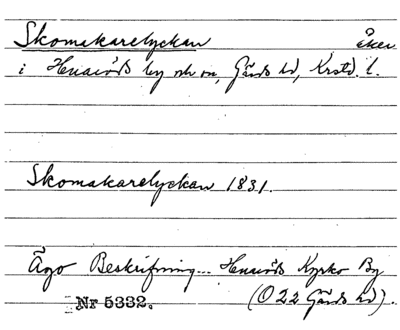 Skomakarelyckan åker
i Huaröds by och sn, Gärds hd, Krstd. l.
Skomakarelyckan 1831.
Ägo Beskrifning... Huaröds Kyrko By
Nr 5332. (O 22 Gärds hd).